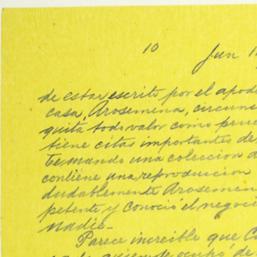 10
Jun 1
de estar escrito por el apod
casa, Arosemina, circuns
quita todo valor como prue
tiene citas importantes de
termando una coleccion d
contiene una reproducion
dudablemente Arosemin
petente y conoció el negoci
nadie.
Parece increible que C